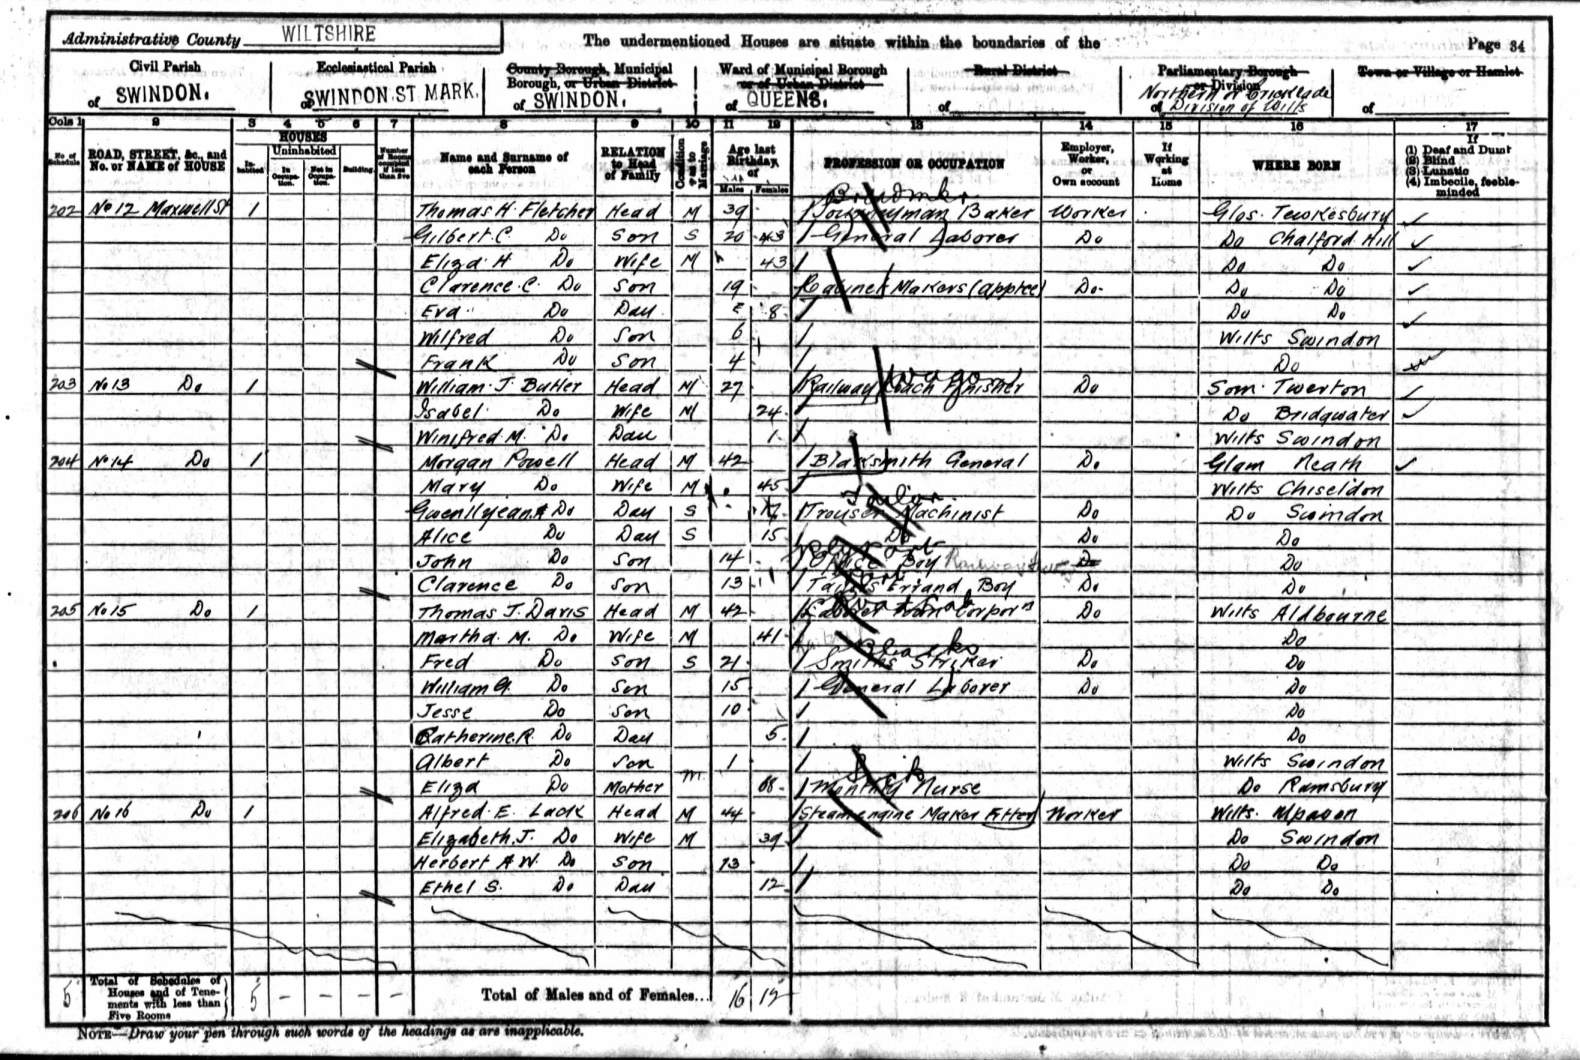 Administrative County WILTSHIRE
The undermentioned Houses are situate within the boundaries of the
Page 34
Civil Parish of SWINDON.
Ecclesiastical Parish of SWINDON ST MARK.
County Borough, Municipal Borough, or Urban District of SWINDON.
Ward of Municipal Borough or of Urban District of QUEENS.
Rural District of
Parliamentary Borough or Division of Northern or Cricklade Division of Wilts
Town or Village or Hamlet of
Cols 1 2 3 4 5 6 7 8 9 10 11 12 13 14 15 16 17
No of Schedule
ROAD, STREET, &c., and No. or NAME of HOUSE
HOUSES
Inhabited
Uninhabited
In Occupation.
Not in Occupation.
Building.
Number of Rooms occupied if less than five
Name and Surname of each Person
RELATION to Head of Family
Condition as to Marriage
Age last Birthday, of
Males Females
PROFESSION OR OCCUPATION
Employer, Worker, or Own account
If Working at Home
WHERE BORN
If
(1) Deaf and Dumb
(2) Blind
(3) Lunatic
(4) Imbecile, feeble-minded
202 No 12 Maxwell St 1 Thomas H. Fletcher Head M 39 Journeyman Baker Worker Glos. Tewkesbury
Gilbert C. Do Son S 20 43 General Laborer Do Do Chalford Hill
Eliza H Do Wife M 43 Do Do
Clarence C. Do Son 19 Cabinet Makers (apptce) Do Do Do
Eva Do Dau 8 Do Do
Wilfred Do Son 6 Wilts Swindon
Frank Do Son 4 Do
203 No 13 Do 1 William J. Butler Head M 27 Railway Coach Finisher Wagon Do Som. Twerton
Isabel Do Wife M 24 Do Bridgwater
Winifred M. Do Dau 1 Wilts Swindon
204 No 14 Do 1 Morgan Powell Head M 42 Blacksmith General Do Glam Neath
Mary Do Wife M 45 Wilts Chiseldon
Tailor
Do Dau S 17 Trouser Machinist Do Do Swindon
Alice Do Dau S 15 Do Do Do
John Do Son 14 Office Boy Railway Do Do
Clarence Do Son 13 Errand Boy Do Do
205 No 15 Do 1 Thomas J. Davis Head M 42 Do Wilts Aldbourne
Martha M. Do Wife M 41 Do
Blacks
Fred Do Son S 21 Smiths Striker Do Do
William G. Do Son 15 General Laborer Do Do
Jesse Do Son 10 Do
Catherine R. Do Dau 5 Do
Albert Do Son 1 Wilts Swindon
Sick
Eliza Do Mother m 68 Monthly Nurse Do Ramsbury
206 No 16 Do 1 Alfred E. Lack Head M 44 Steam engine Maker Fitter Worker Wilts. Upavon
Elizabeth J. Do Wife M 39 Do Swindon
Herbert A W. Do Son 13 Do Do
Ethel S. Do Dau 12 Do Do
5 Total of Schedules of Houses and of Tenements with less than Five Rooms 5 - - - - Total of Males and of Females... 16 12
NOTE—Draw your pen through such words of the headings as are inapplicable.